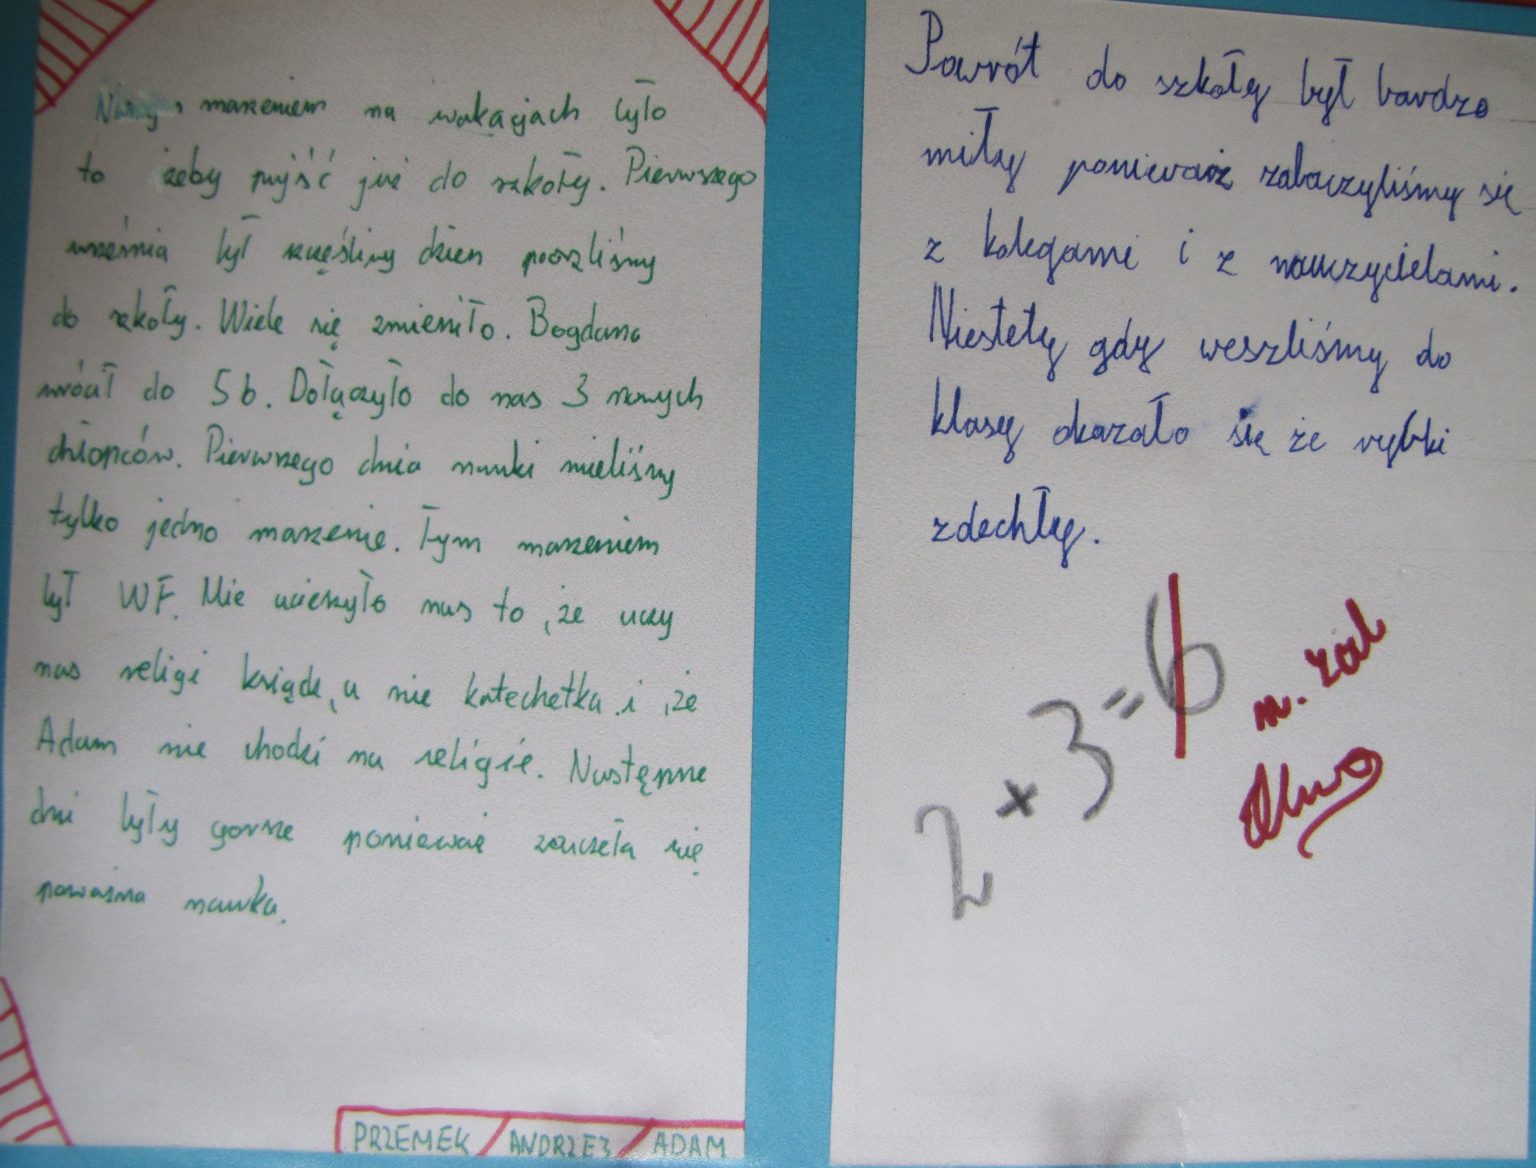 Naszym marzeniem na wakacjach było
to żeby pójść już do szkoły. Pierwszego
września był szczęśliwy dzien poszliśmy
do szkoły. Wiele się zmieniło. Bogdana
wrócił do 5b. Dołączyło do nas 3 nowych
chłopców. Pierwszego dnia nauki mieliśmy
tylko jedno marzenie. Tym marzeniem
był WF. Nie ucieszyło nas to, że uczy
nas religi ksiądz, a nie katechetka i, że
Adam nie chodzi na religię. Następne
dni były gorsze ponieważ zaczeła się
poważna nauka.
PRZEMEK / ANDRZEJ / ADAM
Powrót do szkoły był bardzo
miły ponieważ zobaczyliśmy się
z kolegami i z nauczycielami.
Niestety gdy weszliśmy do
klasy okazało się że rybki
zdechły.
2 x 3 = 6